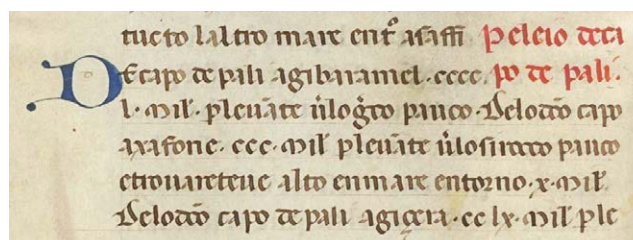 tucto laltro mare ent͛ asaffi Peleio deca
De capo de pali agibaramel · cccc · po de pali.
l · mil̅ · pleua̅te u̅log̅to pauco · Delodc̅o capo
axafone · ccc · mil̅ pleua̅te u̅losirocco pauco
etrouareteue alto enmare entorno · x · mil̅
Delodc̅o capo de pali agiçera · cc lx · mil̅ ple